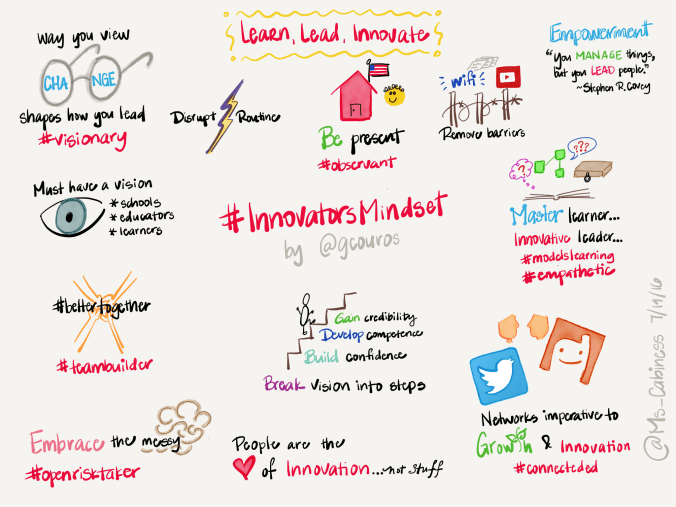 Learn, Lead, Innovate
way you view
CHA NGE
shapes how you lead
#visionary
Disrupt Routine
Be present
#observant
wifi
Remove barriers
Empowerment
"You MANAGE things,
but you LEAD people."
~Stephen R. Covey
Must have a vision
* schools
* educators
* learners
#InnovatorsMindset
by @gcouros
?
???
Master learner...
Innovative leader...
#modelslearning
#empathetic
#bettertogether
#teambuilder
Gain credibility
Develop competence
Build confidence
Break vision into steps
Networks imperative to
Growth & Innovation
#connecteded
Embrace the messy
#openrisktaker
People are the
of Innovation...not stuff
@Ms_Cabiness 7/19/16